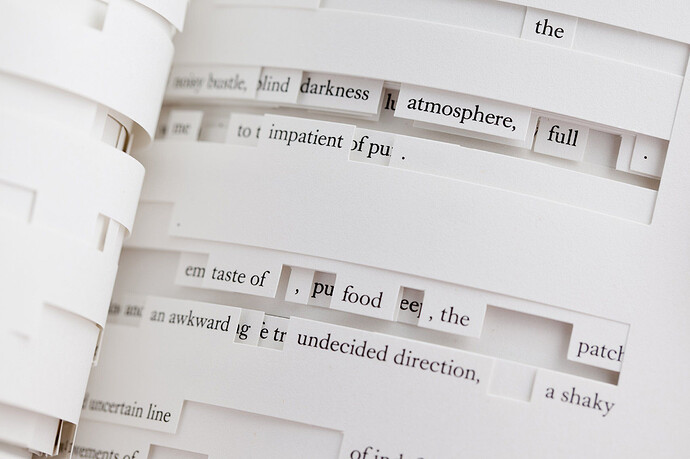 the
noisy bustle, blind darkness lu atmosphere, full .
me to t impatient of pu .
.
em taste of , pu food eep , the
an awkward g e tr undecided direction, patch
a shaky
uncertain line
vements of of ind